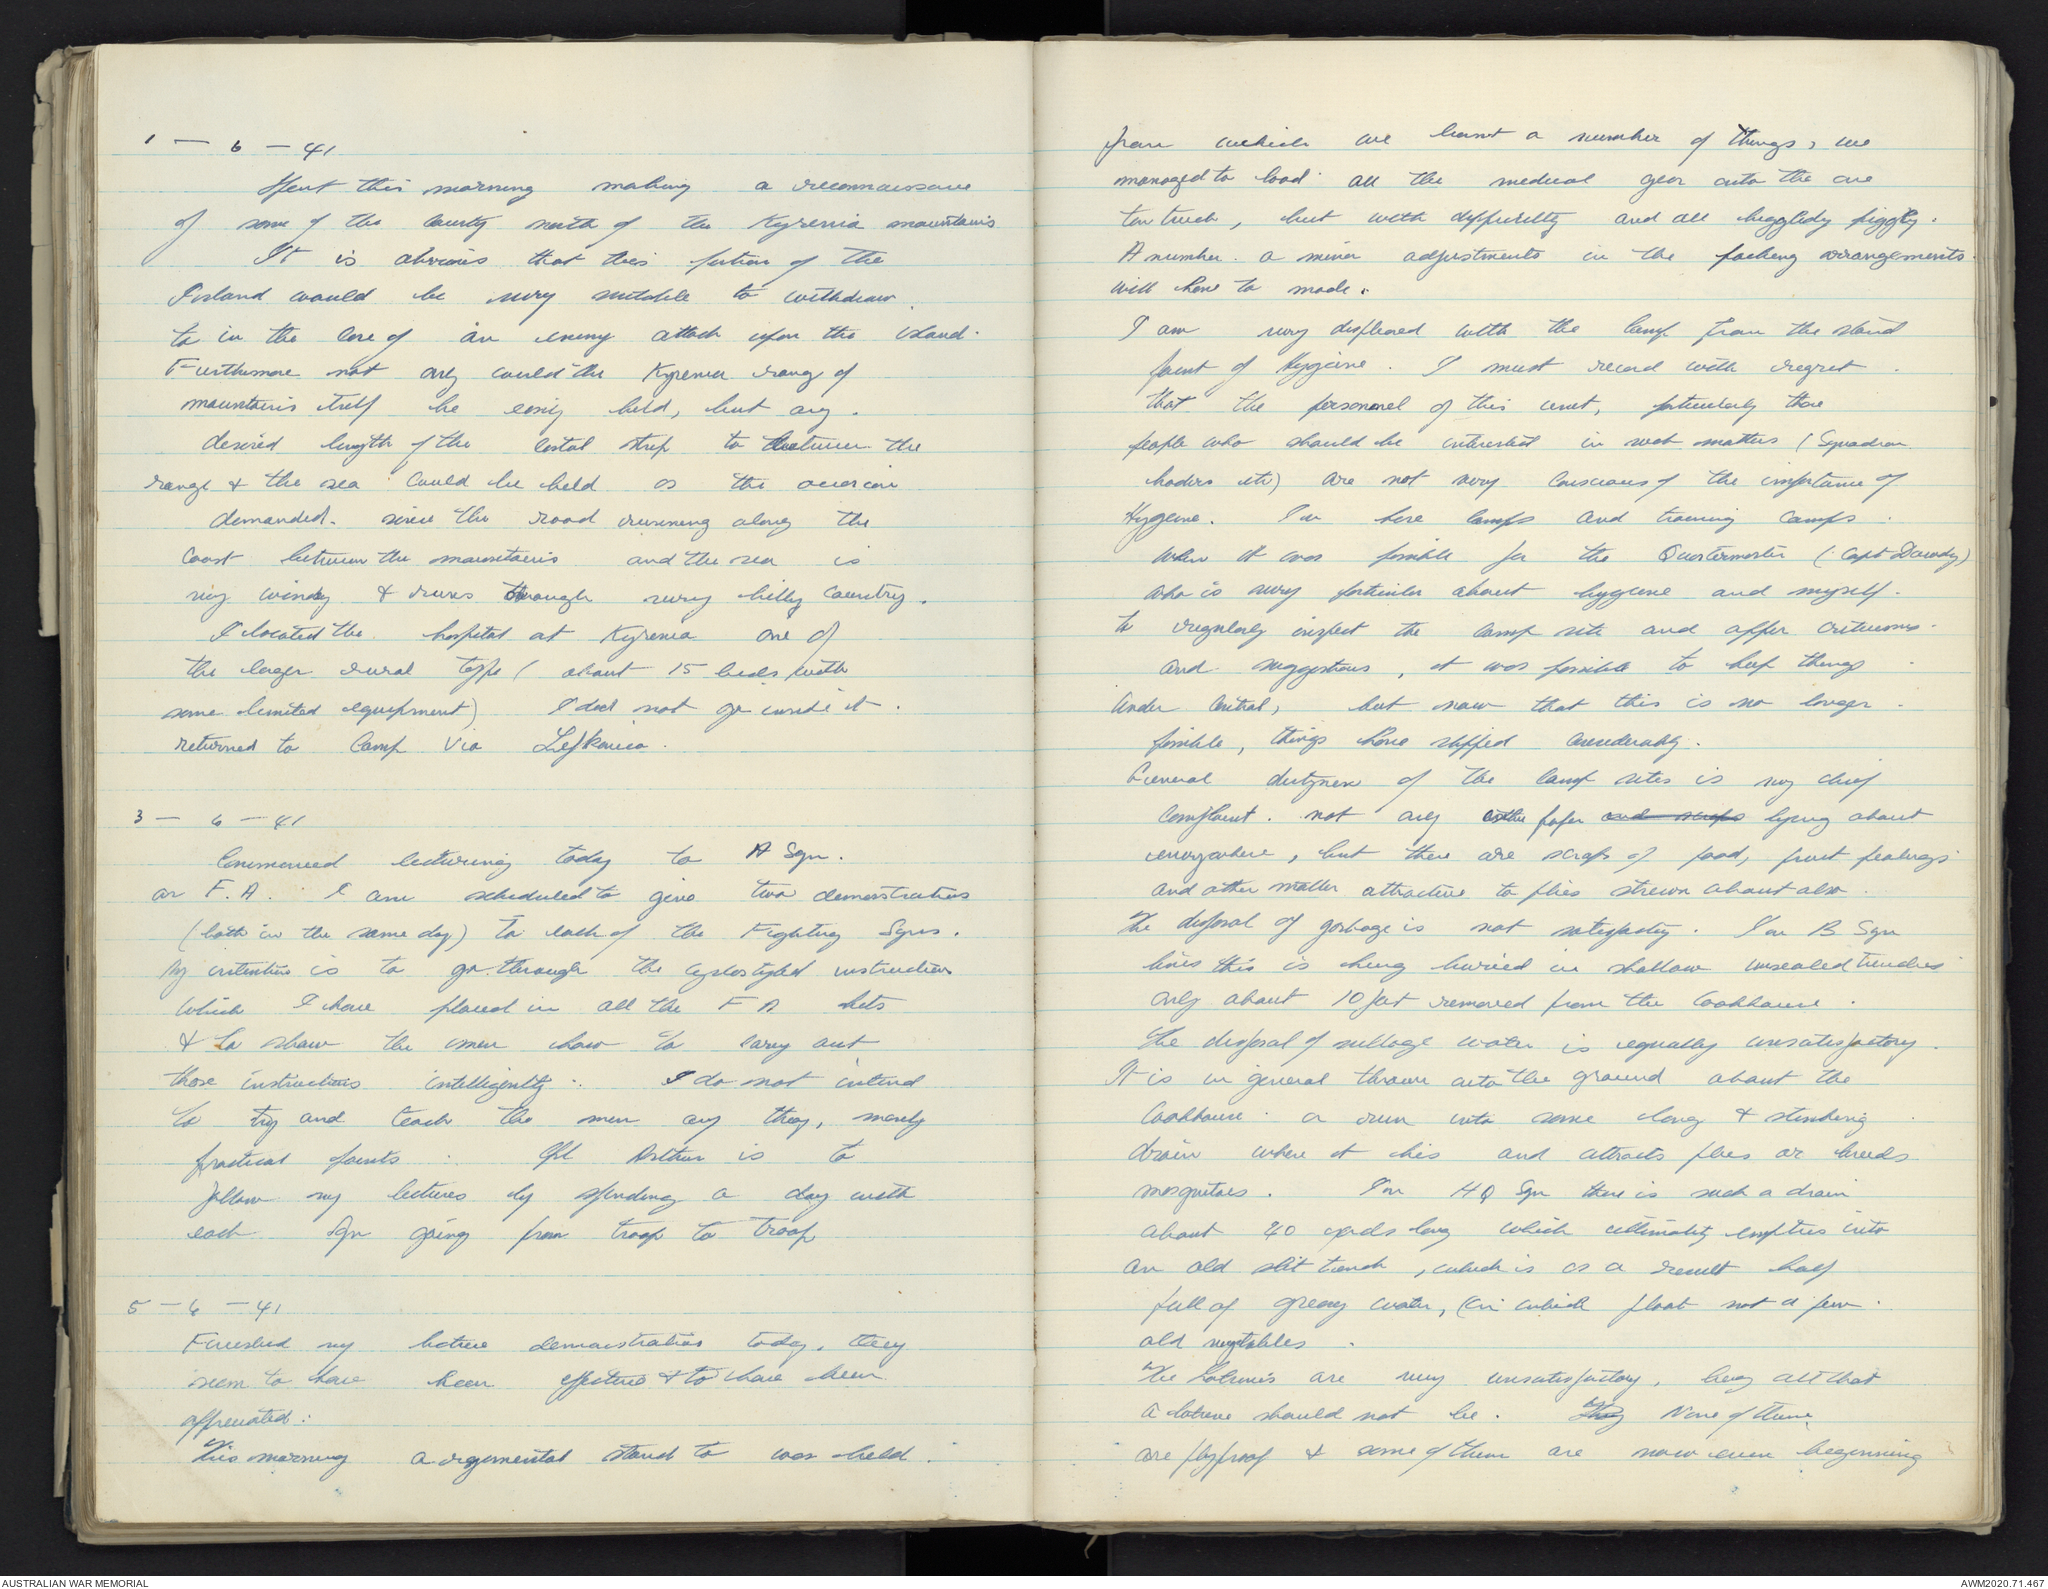 1 - 6 - 41
Spent this morning making a reconnaissance
of some of the county north of the Kyrenia mountains
It is obvious that this portion of the
Island would be very suitable to withdraw
to in the case of an enemy attack upon the island.
Furthermore not only could the Kyrenia range of
mountains itself be easily held, but any
desired length of the costal strip to between the
range & the sea could be held as the occasion
demanded. since the road running along the
Coast between the mountains and the sea is
very windy & runs through very hilly country.
I located the hospital at Kyrenia one of
the larger rural type (about 15 beds with
some limited equipment) I did not go inside it.
returned to Camp via Lefkonico.
3 - 6 - 41
Commenced lecturing today to A Sqn.
on F.A. I am scheduled to give two demonstrations
(both in the same day) to each of the Fighting Sqns.
My intention is to go through the cyclostyled instruction
which I have placed in all the F A kits
& to show the men how to carry out
those instructions intelligently. I do not intend
to try and teach the men any theory, merely
practical points. Cpl Arthur is to
follow my lectures by spending a day with
each Sqn going from troop to troop
5 - 6 - 41
Finished my lecture demonstration today, they
seem to have been effective & to have been
appreciated.
This morning a regimental stand to was held.
from which we learnt a number of things, we
managed to load all the medical gear onto the one
ton truck, but with difficulty and all higgledy piggly.
A number a minor adjustments in the packing arrangements
will have to made.
I am very displeased with the camp from the stand
point of Hygiene. I must record with regret
that the personnel of this unit, particularly those
people who should be interested in such matters (Squadron
leaders etc) are not very conscious of the importance of
Hygiene. In base camps and training camps
when it was possible for the Quartermaster (Capt Dowdy)
who is very particular about hygiene and myself
to regularly inspect the camp site and offer criticisms
and suggestions, it was possible to keep things
under control, but now that this is no longer
possible, things have slipped considerably.
General dirtyness of the camp sites is my chief
complaint. not only is the paper and scraps lying about
everywhere, but there are scraps of food, fruit peelings
and other matter attractive to flies strewn about also.
The disposal of garbage is not satisfactory. In B Sqn
lines this is being buried in shallow unsealed trenches
only about 10 feet removed from the Cookhouse.
The disposal of sullage water is equally unsatisfactory.
It is in general thrown onto the ground about the
Cookhouse or run into some long & stinking
drain where it lies and attracts flies or breeds
mosquitoes. In HQ Sqn there is such a drain
about 40 yards long which ultimately empties into
an old slit trench, which is as a result half
full of greasy water, (in which float not a few
old vegetables.
The Latrines are very unsatisfactory, being all that
a latrine should not be. They None of them
are flyproof & some of them are now even beginning
AUSTRALIAN WAR MEMORIAL
AWM2020.71.467